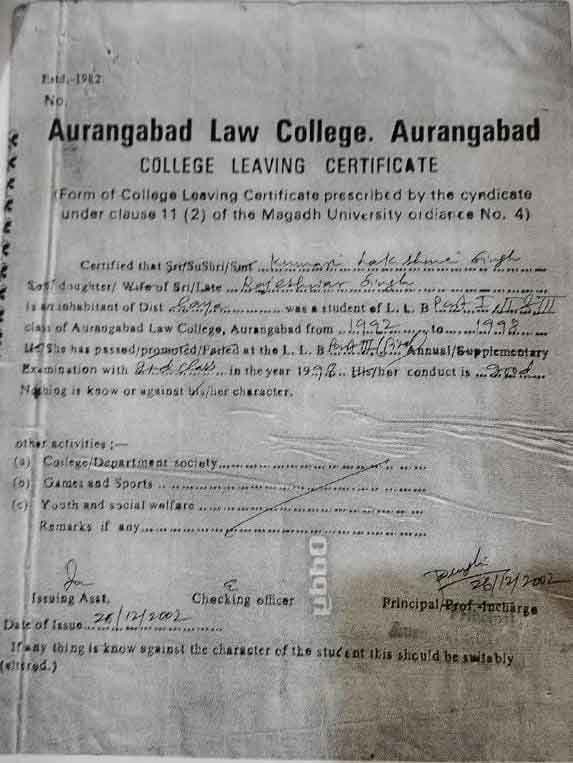 Estd.-1982
No.
Aurangabad Law College. Aurangabad
COLLEGE LEAVING CERTIFICATE
(Form of College Leaving Certificate prescribed by the cyndicate
under clause 11 (2) of the Magadh University ordiance No. 4)
Certified that Sri/SuShri/Smt .. Kumari Lakshmi Singh
Son/ daughter/ Wife of Sri/Late ... Rajeshwar Singh
Is an inhabitant of Dist .. Gaya ............ was a student of L. L. B Part I, II & III
class of Aurangabad Law College, Aurangabad from .. 1992 ..... to ..... 1998 ....
He/She has passed/promoted/Failed at the L. L. B Part III/ Annual/Supplementary
Examination with 2nd class ... in the year 1998 .. His/her conduct is .. good
Nothing is know or against his/her character.
other activities ;—
(a) College/Department society
(b) Games and Sports
(c) Youth and social welfare
Remarks if any
26/12/2002
Issuing Asst. Checking officer Principal/Prof.-Incharge
Date of Issue.. 26/12/2002
If any thing is know against the character of the student this should be suitably
(altered.)